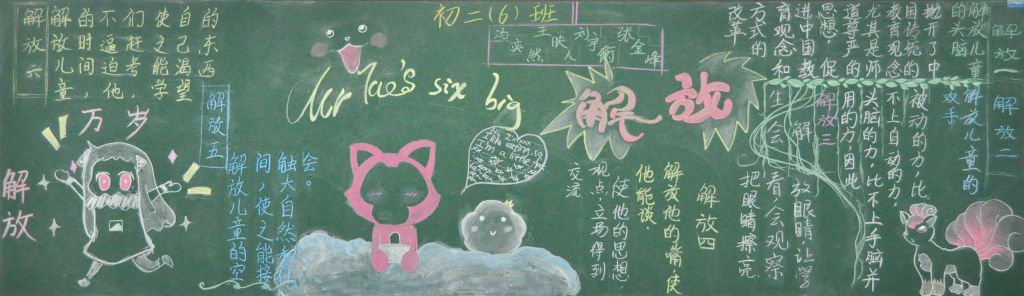 初二(6)班
Mr Tae's six big
解放
解放一
解放儿童
的头脑
抛开了中
国传统的
教育观念
尤其是师
道尊严的
思想,促
进中国教
育观念和
方式的
改革
解放二
解放儿童的
双手
被动的力,比
不上自动的力,
头脑的力,比不上手脑并
用的力,因此
解放三
解放眼睛让学
生会看会观察
把眼睛擦亮
解放四
解放他的嘴,使
他能谈.
使他的思想,
观点,立场得到
交流
解放五
解放儿童的空
间,使之能接
触大自然和社
会。
解放六
解放儿童,
的时间,
不逼迫他,
们赶考,
使之能学
自己渴望
的东西
万岁
解放